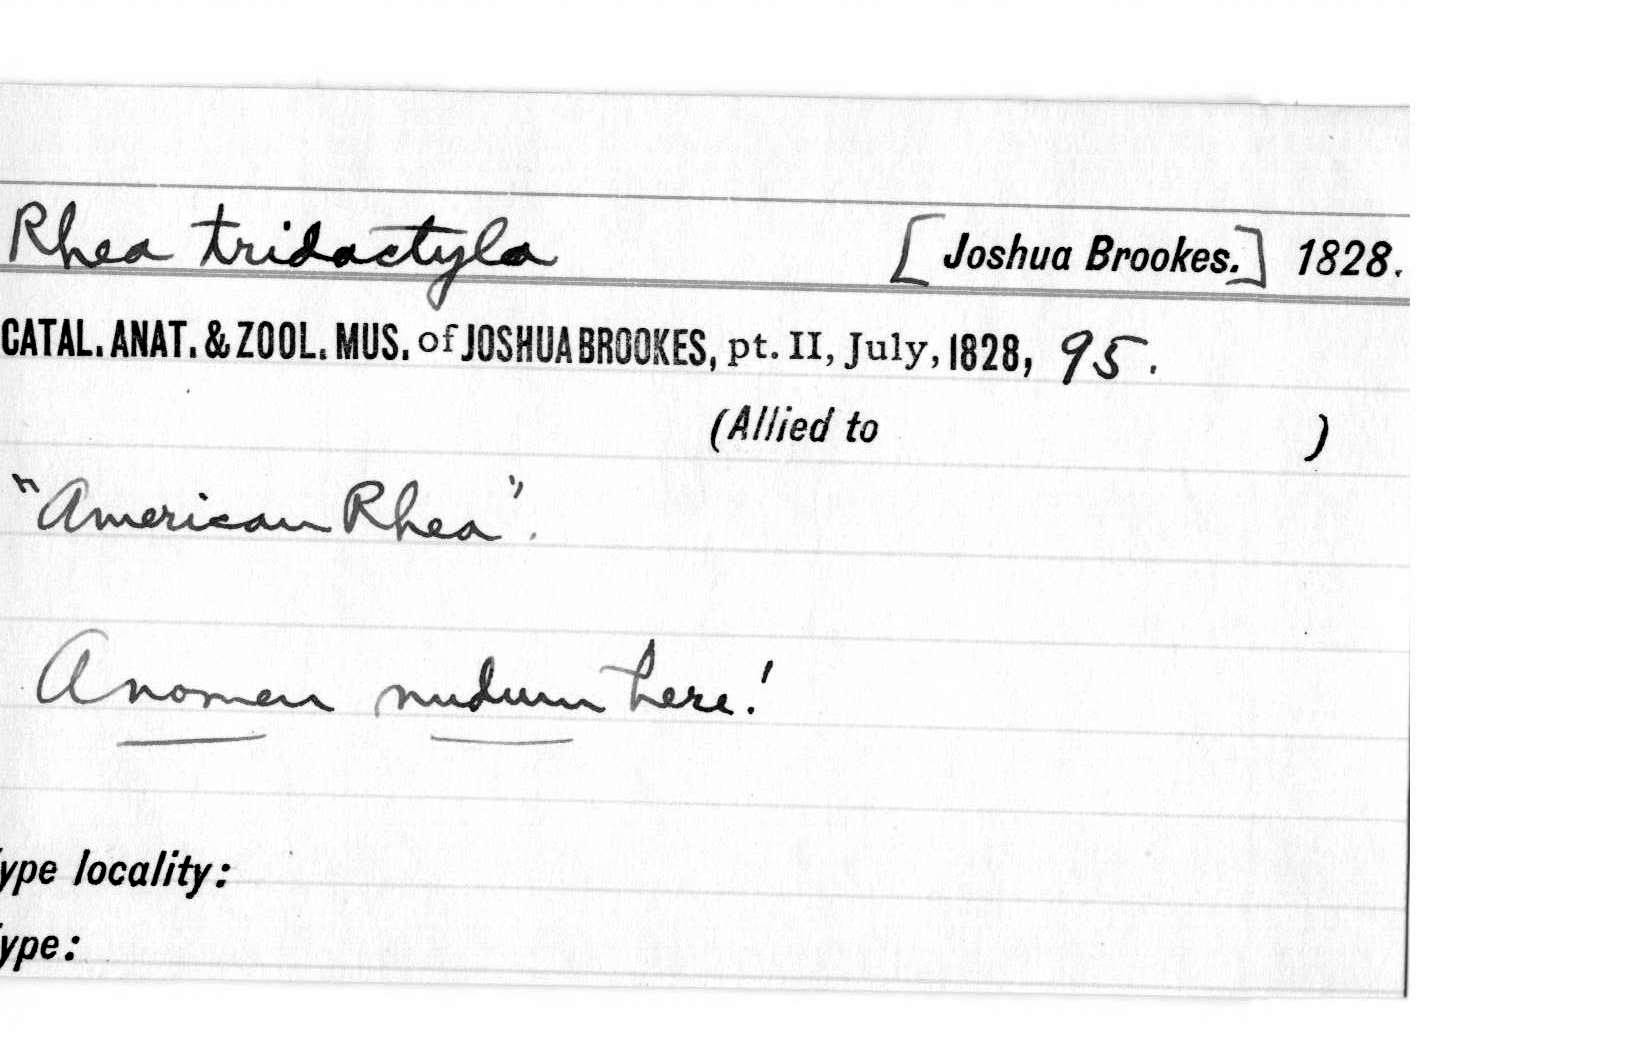 Rhea tridactyla [Joshua Brookes.] 1828.
CATAL. ANAT. & ZOOL. MUS. of JOSHUA BROOKES, pt. II, July, 1828, 95.
(Allied to )
"American Rhea".
A nomen nudum here!
ype locality:
ype: